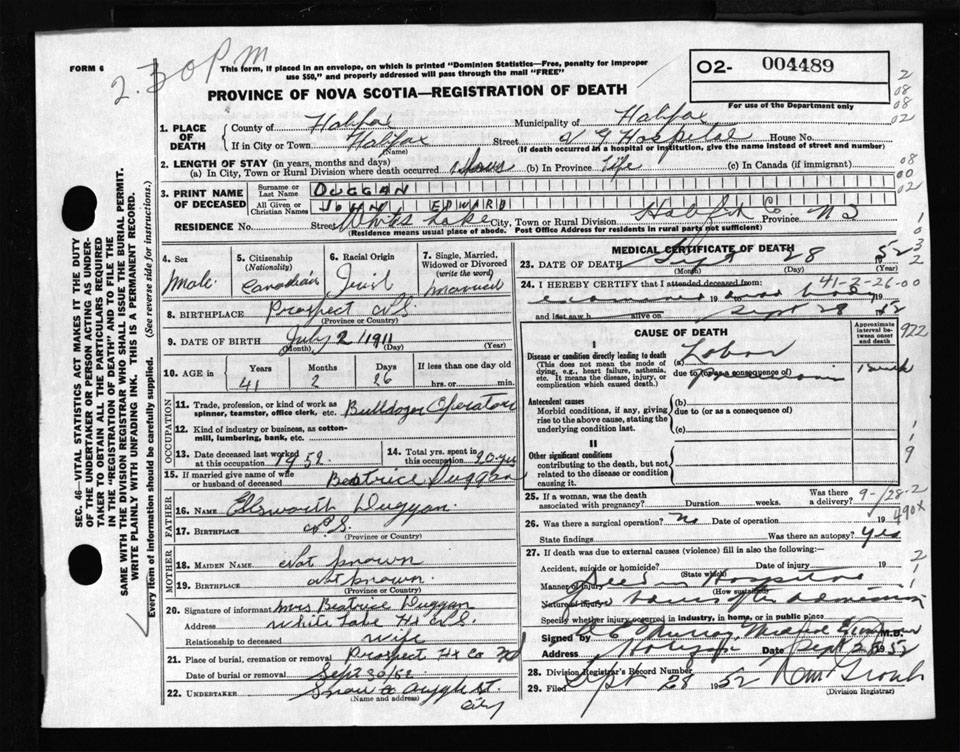 FORM 6
2.30 PM
This form, if placed in an envelope, on which is printed "Dominion Statistics—Free, penalty for improper
use $50," and properly addressed will pass through the mail "FREE"
O2- 004489
For use of the Department only
2
08
08
02
PROVINCE OF NOVA SCOTIA—REGISTRATION OF DEATH
1. PLACE OF DEATH
County of Halifax Municipality of Halifax
If in City or Town Halifax Street V G Hospital House No.
(Name) (If death occurred in a hospital or institution, give the name instead of street and number)
2. LENGTH OF STAY (in years, months and days)
(a) In City, Town or Rural Division where death occurred hours (b) In Province Life (c) In Canada (if immigrant)
08
00
02
3. PRINT NAME OF DECEASED
Surname or Last Name DUGGAN
All Given or Christian Names JOHN EDWARD
RESIDENCE No. Street Whites Lake City, Town or Rural Division Halifax Co Province N S
(Residence means usual place of abode. Post Office Address for residents in rural parts not sufficient)
4. Sex
Male
5. Citizenship (Nationality)
Canadian
6. Racial Origin
Irish
7. Single, Married, Widowed or Divorced (write the word)
Married
8. BIRTHPLACE Prospect N.S.
(Province or Country)
9. DATE OF BIRTH July 2 1911
(Month) (Day) (Year)
10. AGE in Years Months Days If less than one day old
41 2 26 hrs. or min.
OCCUPATION
11. Trade, profession, or kind of work as spinner, teamster, office clerk, etc. Bulldozer Operator
12. Kind of industry or business, as cotton-mill, lumbering, bank, etc.
13. Date deceased last worked at this occupation 1952
14. Total yrs. spent in this occupation 20 yrs
15. If married give name of wife or husband of deceased Beatrice Duggan
FATHER
16. Name Ellsworth Duggan
17. BIRTHPLACE N.S.
(Province or Country)
MOTHER
18. MAIDEN NAME Not known
19. BIRTHPLACE Not known
(Province or Country)
20. Signature of informant Mrs Beatrice Duggan
Address White Lake Hx N.S.
Relationship to deceased wife
21. Place of burial, cremation or removal Prospect Hx Co NS
Date of burial or removal Sept 30/52
22. UNDERTAKER Snow & Co Argyle St.
(Name and address) City
MEDICAL CERTIFICATE OF DEATH
23. DATE OF DEATH Sept 28 1952
(Month) (Day) (Year)
24. I HEREBY CERTIFY that I attended deceased from:
41-2-26-00
examined 19 body 19
and last saw h alive on Sept 28 1952
CAUSE OF DEATH
Approximate interval between onset and death
I
Disease or condition directly leading to death
(This does not mean the mode of dying, e.g., heart failure, asthenia, etc. It means the disease, injury, or complication which caused death.)
(a) Lobar
due to (or as a consequence of) pneumonia 1 week
Antecedent causes
Morbid conditions, if any, giving rise to the above cause, stating the underlying condition last.
(b)
due to (or as a consequence of)
(c)
II
Other significant conditions
contributing to the death, but not related to the disease or condition causing it.
25. If a woman, was the death associated with pregnancy? Duration weeks. Was there a delivery?
9-/28-2
490X
26. Was there a surgical operation? no Date of operation 19
State findings Was there an autopsy? yes
27. If death was due to external causes (violence) fill in also the following:—
Accident, suicide or homicide? Date of injury 19
(State which)
Manner of injury Died in Hospital
(How sustained)
Nature of injury hours after admission
Specify whether injury occurred in industry, in home, or in public place
Signed by Murray Medical Examiner M.D.
Address Halifax Date Sept 28 1952
28. Division Registrar's Record Number
29. Filed Sept 28 1952
(Division Registrar)
SEC. 46—VITAL STATISTICS ACT MAKES IT THE DUTY
OF THE UNDERTAKER OR PERSON ACTING AS UNDER-
TAKER TO OBTAIN ALL THE PARTICULARS REQUIRED
IN THE "REGISTRATION OF DEATH" AND TO FILE THE
SAME WITH THE DIVISION REGISTRAR WHO SHALL ISSUE THE BURIAL PERMIT.
WRITE PLAINLY WITH UNFADING INK. THIS IS A PERMANENT RECORD.
Every item of information should be carefully supplied. (See reverse side for instructions.)